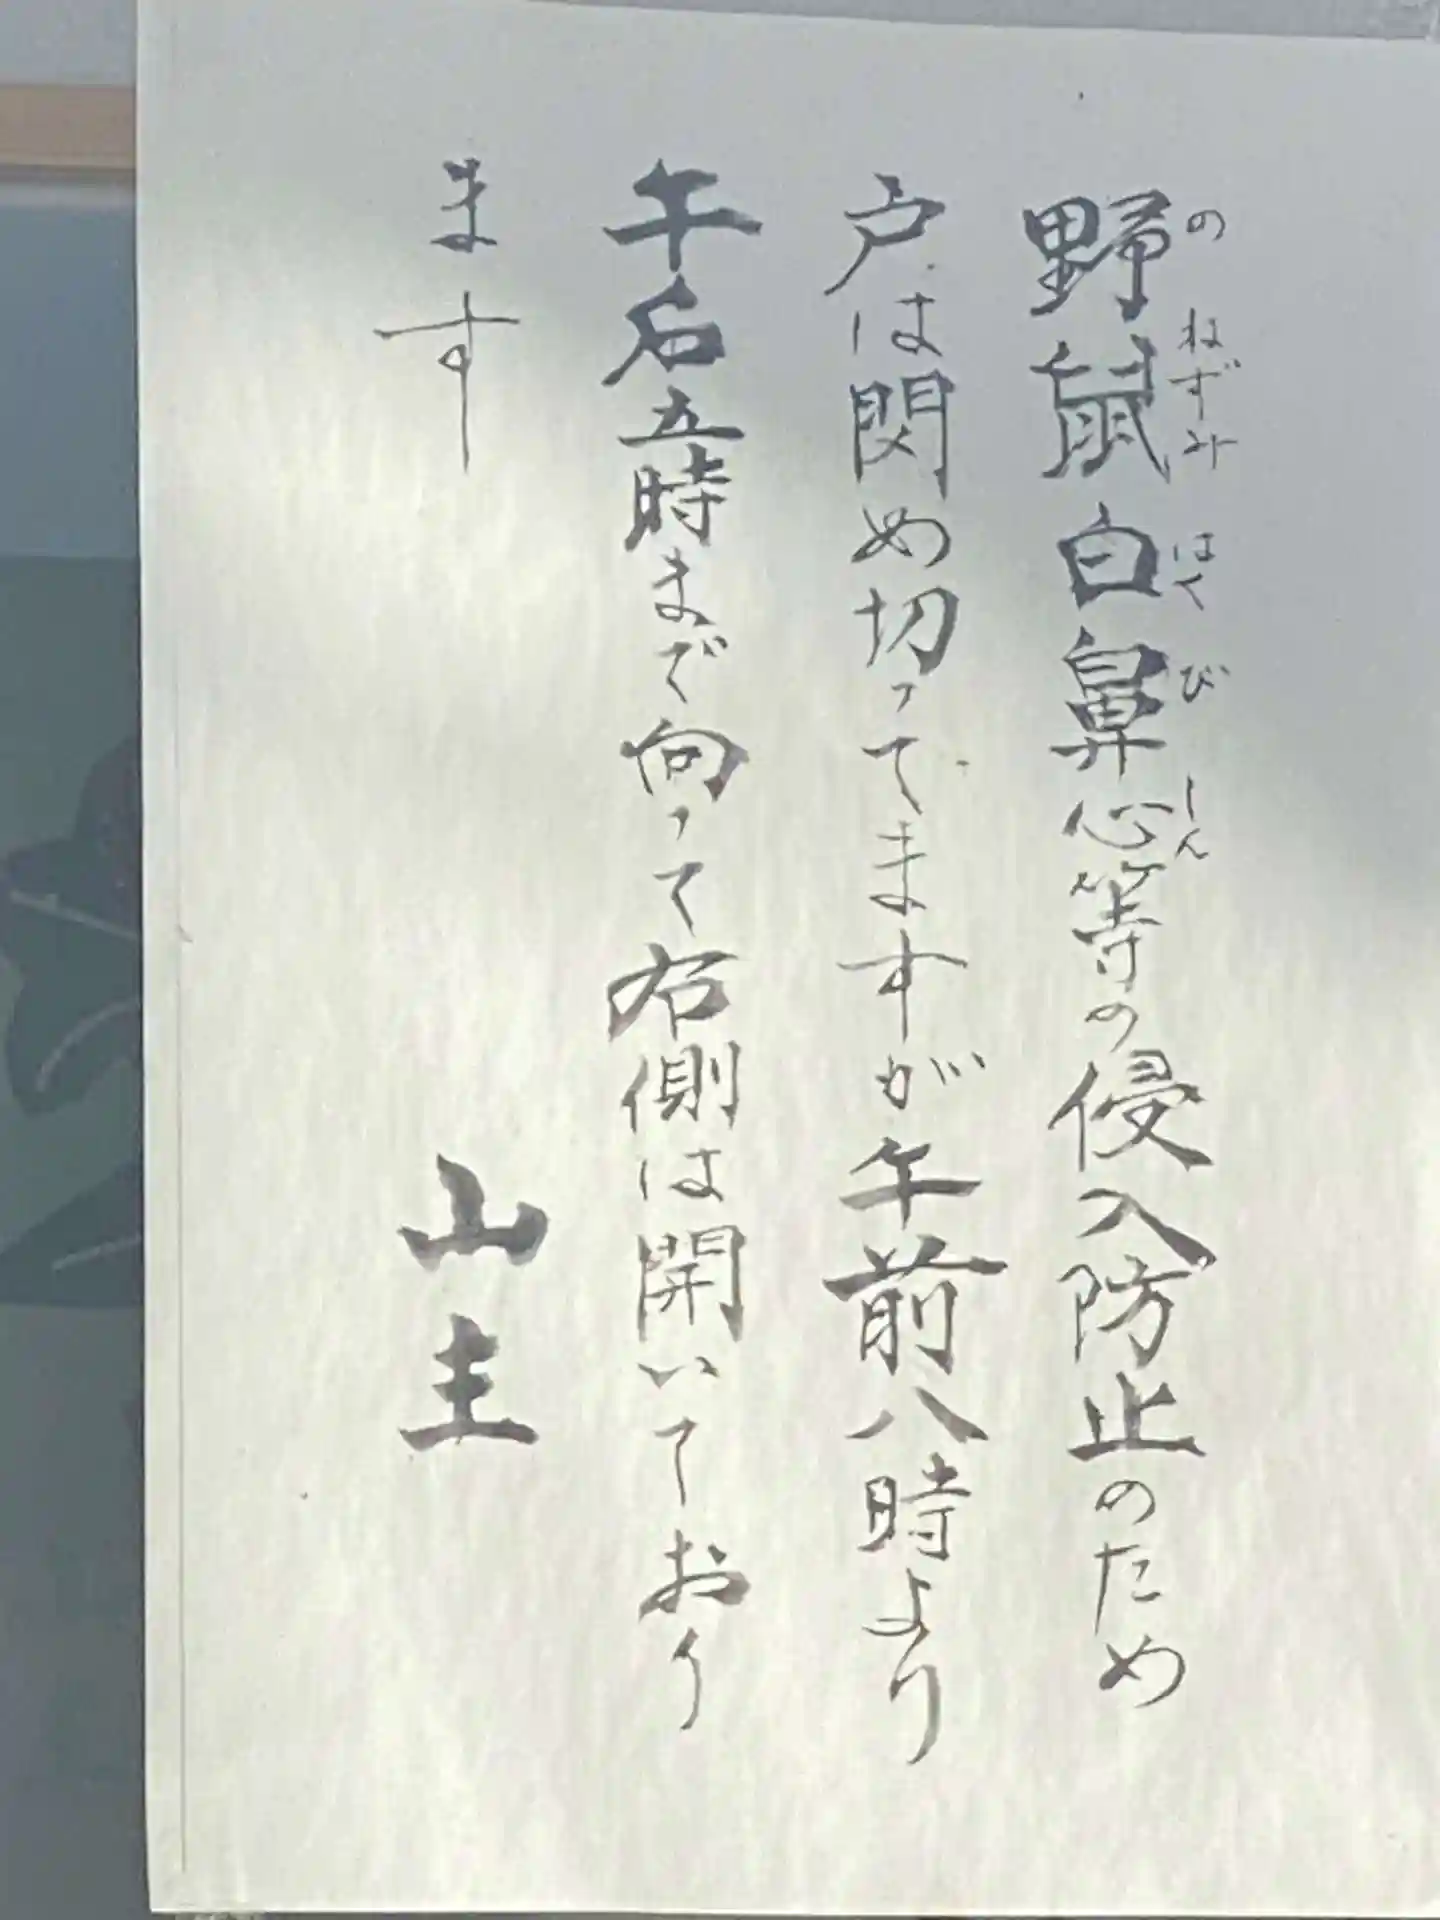 野鼠白鼻心等の侵入防止のため
のねずみはくびしん
戸は閉め切ってますが午前八時より
午后五時まで向って右側は開いており
ます
山主